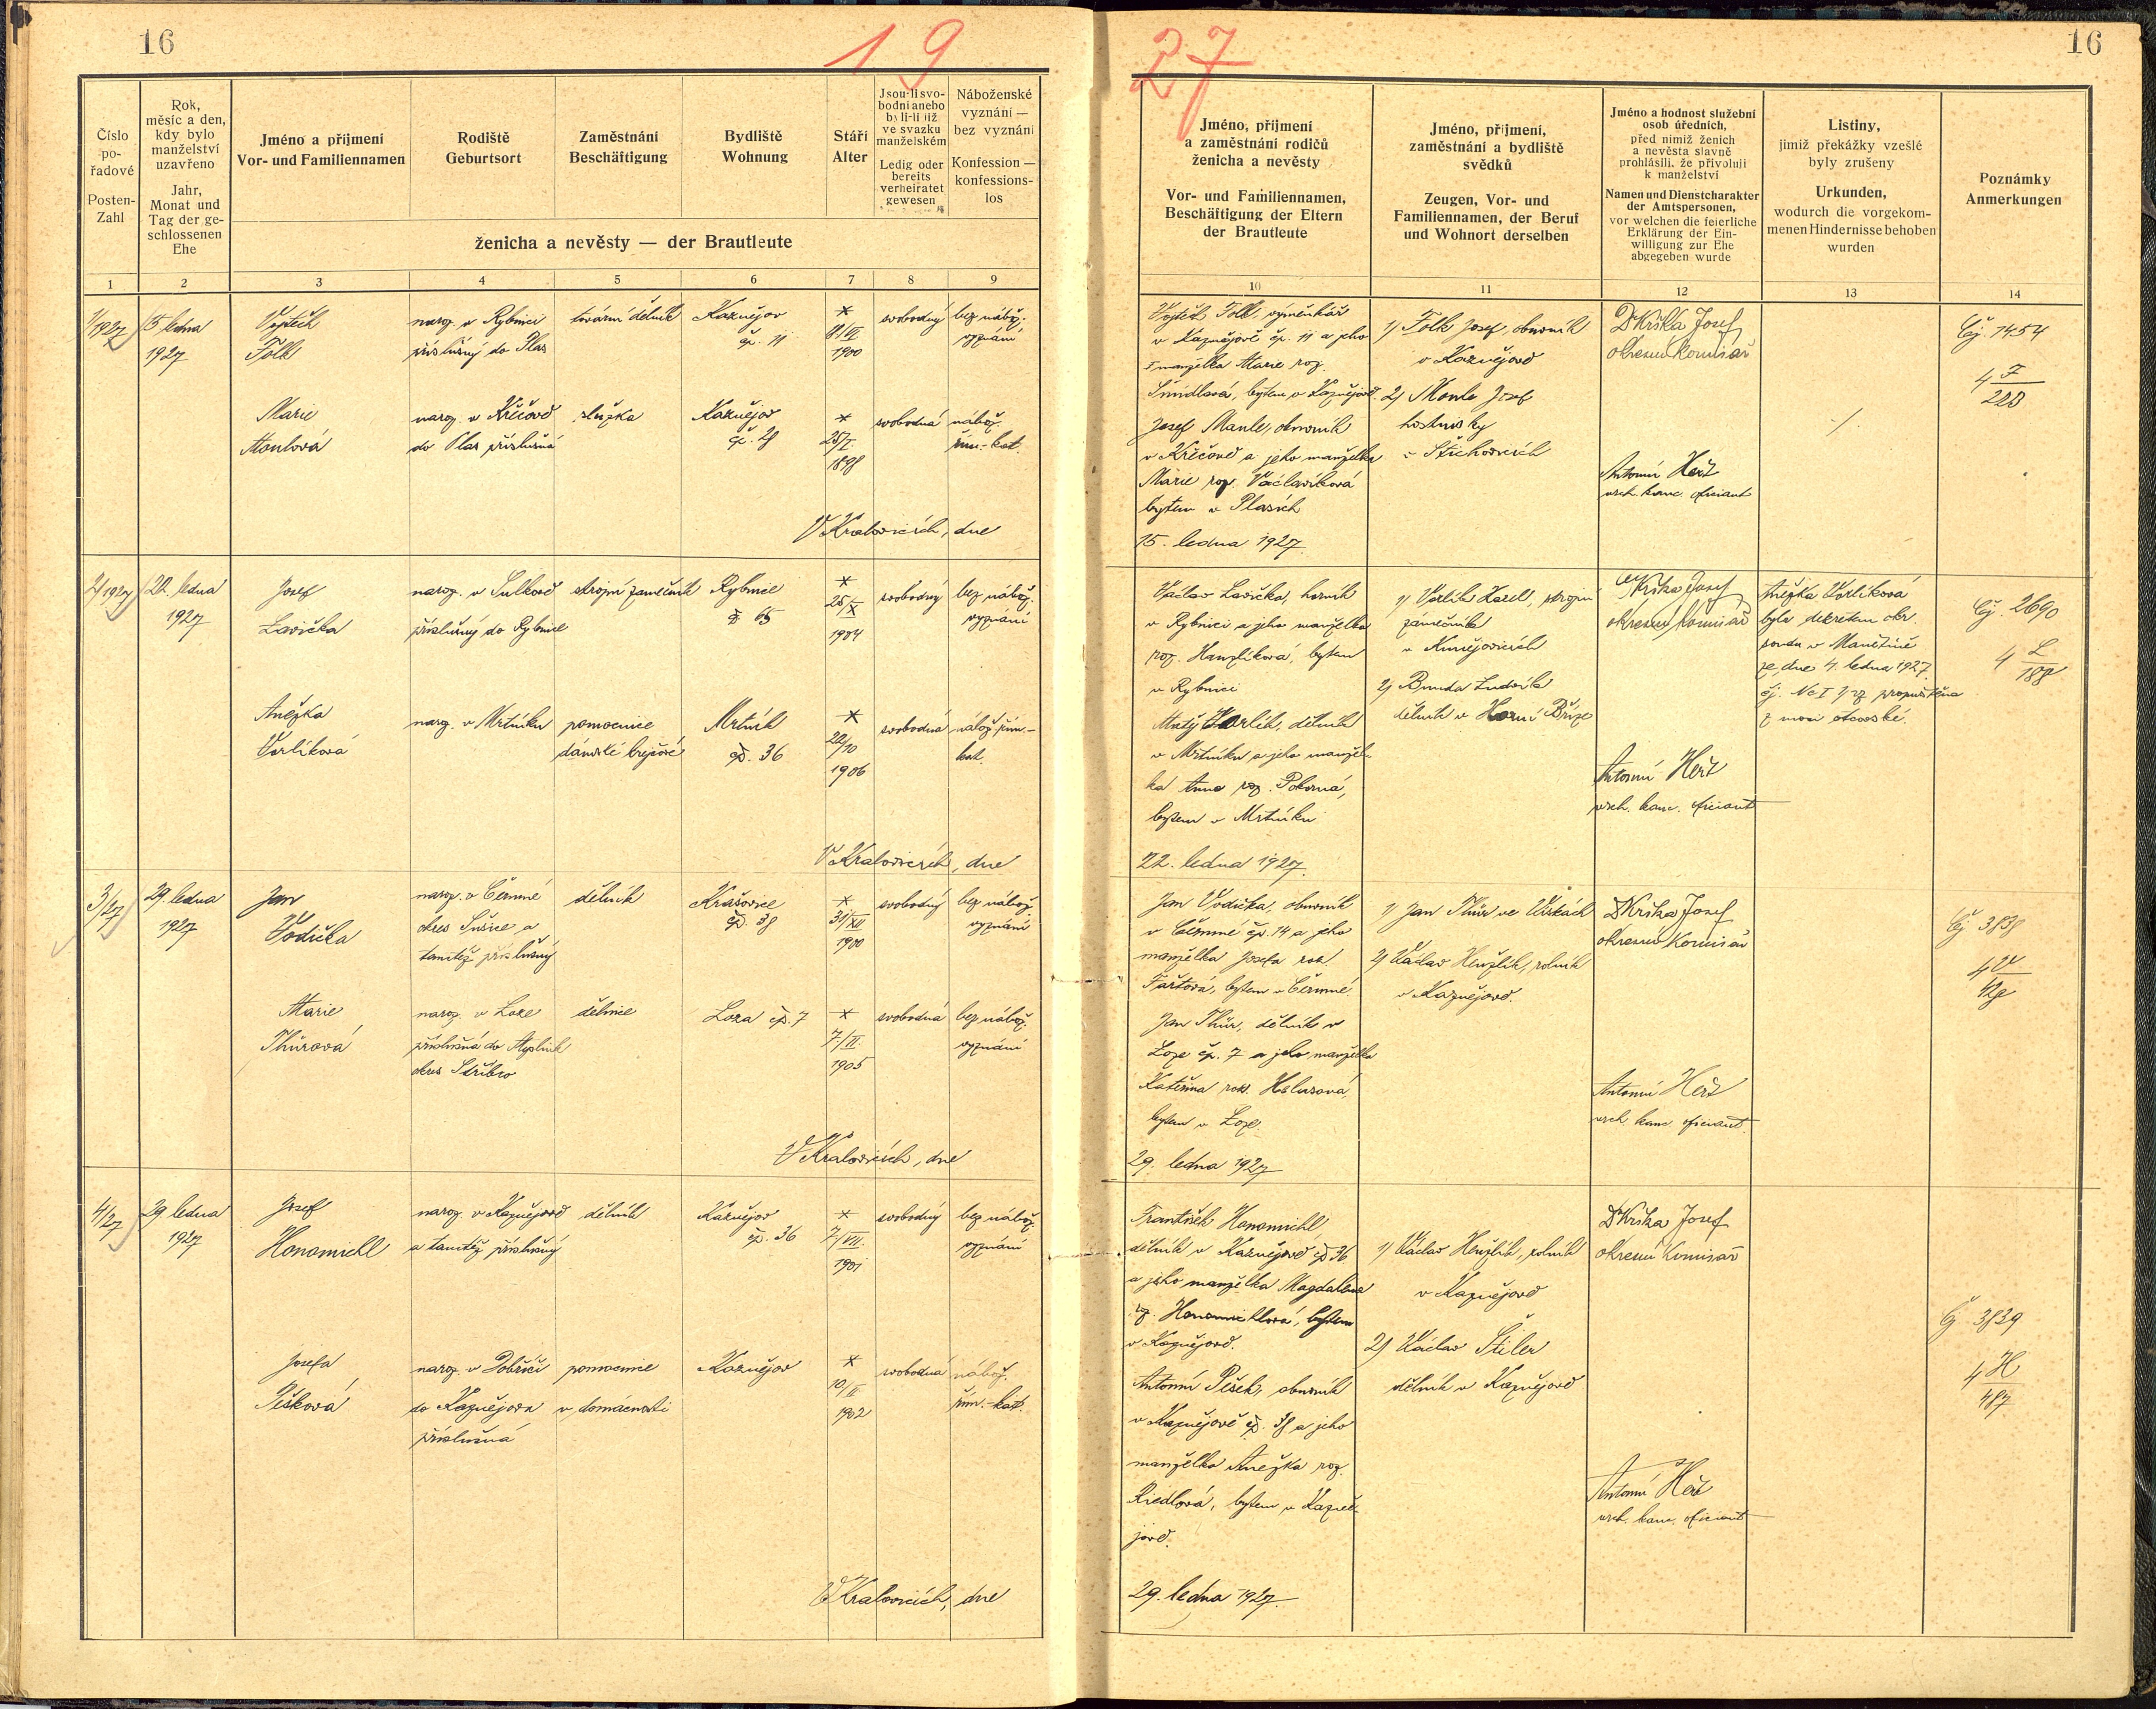 16
19
27
16
Číslo
po-
řadové
Posten-
Zahl
Rok,
měsíc a den,
kdy bylo
manželství
uzavřeno
Jahr,
Monat und
Tag der ge-
schlossenen
Ehe
Jméno a příjmení
Vor- und Familiennamen
Rodiště
Geburtsort
Zaměstnání
Beschäftigung
Bydliště
Wohnung
Stáří
Alter
Jsou-li svo-
bodni anebo
byli-li již
ve svazku
manželském
Ledig oder
bereits
verheiratet
gewesen
Náboženské
vyznání —
bez vyznání
Konfession —
konfessions-
los
ženicha a nevěsty — der Brautleute
Jméno, příjmení
a zaměstnání rodičů
ženicha a nevěsty
Vor- und Familiennamen,
Beschäftigung der Eltern
der Brautleute
Jméno, příjmení,
zaměstnání a bydliště
svědků
Zeugen, Vor- und
Familiennamen, der Beruf
und Wohnort derselben
Jméno a hodnost služební
osob úředních,
před nimiž ženich
a nevěsta slavně
prohlásili, že přivolují
k manželství
Namen und Dienstcharakter
der Amtspersonen,
vor welchen die feierliche
Erklärung der Ein-
willigung zur Ehe
abgegeben wurde
Listiny,
jimiž překážky vzešlé
byly zrušeny
Urkunden,
wodurch die vorgekom-
menen Hindernisse behoben
wurden
Poznámky
Anmerkungen
1 2 3 4 5 6 7 8 9
10 11 12 13 14
1/1927
15 ledna
1927
Vojtěch
Folk
naroz. v Rybnici
příslušný do Plas
tovární dělník
Kaznějov
čp. 11
*
1900
svobodný
bez nábož.
vyznání
Vojtěch Folk, výměnkář
v Kaznějově čp. 11 a jeho
manželka Marie roz.
bytem v Kaznějově.
1) Folk Josef, obuvník
v Kaznějově
2) Manle Josef
hostinský
v Štichovicích
Dr Krška Josef
okresní komisař
Čj. 1454
4 F
223
Marie
Manlová
naroz. v Křečově
do Plas příslušná
služka
Kaznějov
čp. 28
*
25/I
1898
svobodná
nábož.
řím.-kat.
Josef Manle, obuvník
v Křečově a jeho manželka
Marie roz. Václavíková
bytem v Plasích
Antonín Herž
vrch. kanc. oficiant
V Kralovicích, dne
15. ledna 1927.
2/1927
22. ledna
1927
Josef
Lavička
naroz. v Sulkově
příslušný do Rybnice
strojní zámečník
Rybnice
č. 65
*
25/X
1904
svobodný
bez nábož.
vyznání
Václav Lavička, horník
v Rybnici a jeho manželka
roz. Hanzlíková, bytem
v Rybnici
1) Vorlík Karel, strojní
zámečník
v Kunějovicích
2) Bouda Ludvík
dělník v Horní Bříze
Dr Krška Josef
okresní komisař
Anežka Vorlíková
byla dekretem okr.
soudu v Manětíně
ze dne 4. ledna 1927
propuštěna
z moci otcovské.
Čj. 2690
4 L
188
Anežka
Vorlíková
naroz. v Mrtníku
pomocnice
dámské krejčové
Mrtník
čp. 36
*
22/10
1906
svobodná
nábož. řím.-
kat.
Matěj Vorlík, dělník
v Mrtníku a jeho manžel-
ka Anna roz. Pokorná,
bytem v Mrtníku
Antonín Herž
vrch. kanc. oficiant
V Kralovicích, dne
22. ledna 1927.
3/27
29. ledna
1927
Jan
Vodička
naroz. v Čermné
okres Sušice a
tamtéž příslušný
dělník
Krašovice
čp. 38
*
31/XII
1900
svobodný
bez nábož.
vyznání
Jan Vodička, obuvník
v Čermné čp. 14 a jeho
manželka Josefa roz.
bytem v Čermné.
1) Jan Thür ve
2) Václav Henzlík, rolník
v Kaznějově.
Dr Krška Josef
okresní komisař
Čj 3838
4 V
Marie
Thürová
naroz. v Loze
příslušná do
okres Stříbro
dělnice
Loza čp. 7
*
1905
svobodná
bez nábož.
vyznání
Jan Thür, dělník v
Loze čp. 7 a jeho manželka
Kateřina roz.
bytem v Loze.
Antonín Herž
vrch. kanc. oficiant
V Kralovicích, dne
29. ledna 1927
4/27
29. ledna
1927
Josef
Honomichl
naroz. v Kaznějově
a tamtéž příslušný
dělník
Kaznějov
čp. 36
*
7/VII.
1901
svobodný
bez nábož.
vyznání
František Honomichl
dělník v Kaznějově čp 36
a jeho manželka Magdalena
roz. Honomichlová, bytem
v Kaznějově.
1) Václav Henzlík, rolník
v Kaznějově
2) Václav Štiler
dělník v Kaznějově
Dr Krška Josef
okresní komisař
Čj 3839
4 H
487
Josefa
Pešková
naroz. v Dobříči
do Kaznějova
příslušná
pomocnice
v domácnosti
Kaznějov
*
10/II
1902
svobodná
nábož.
řím.-kat.
Antonín Pešek, obuvník
v Kaznějově čp. 38 a jeho
manželka Anežka roz.
Riedlová, bytem v Kazně-
jově.
Antonín Herž
vrch. kanc. oficiant
V Kralovicích, dne
29. ledna 1927.